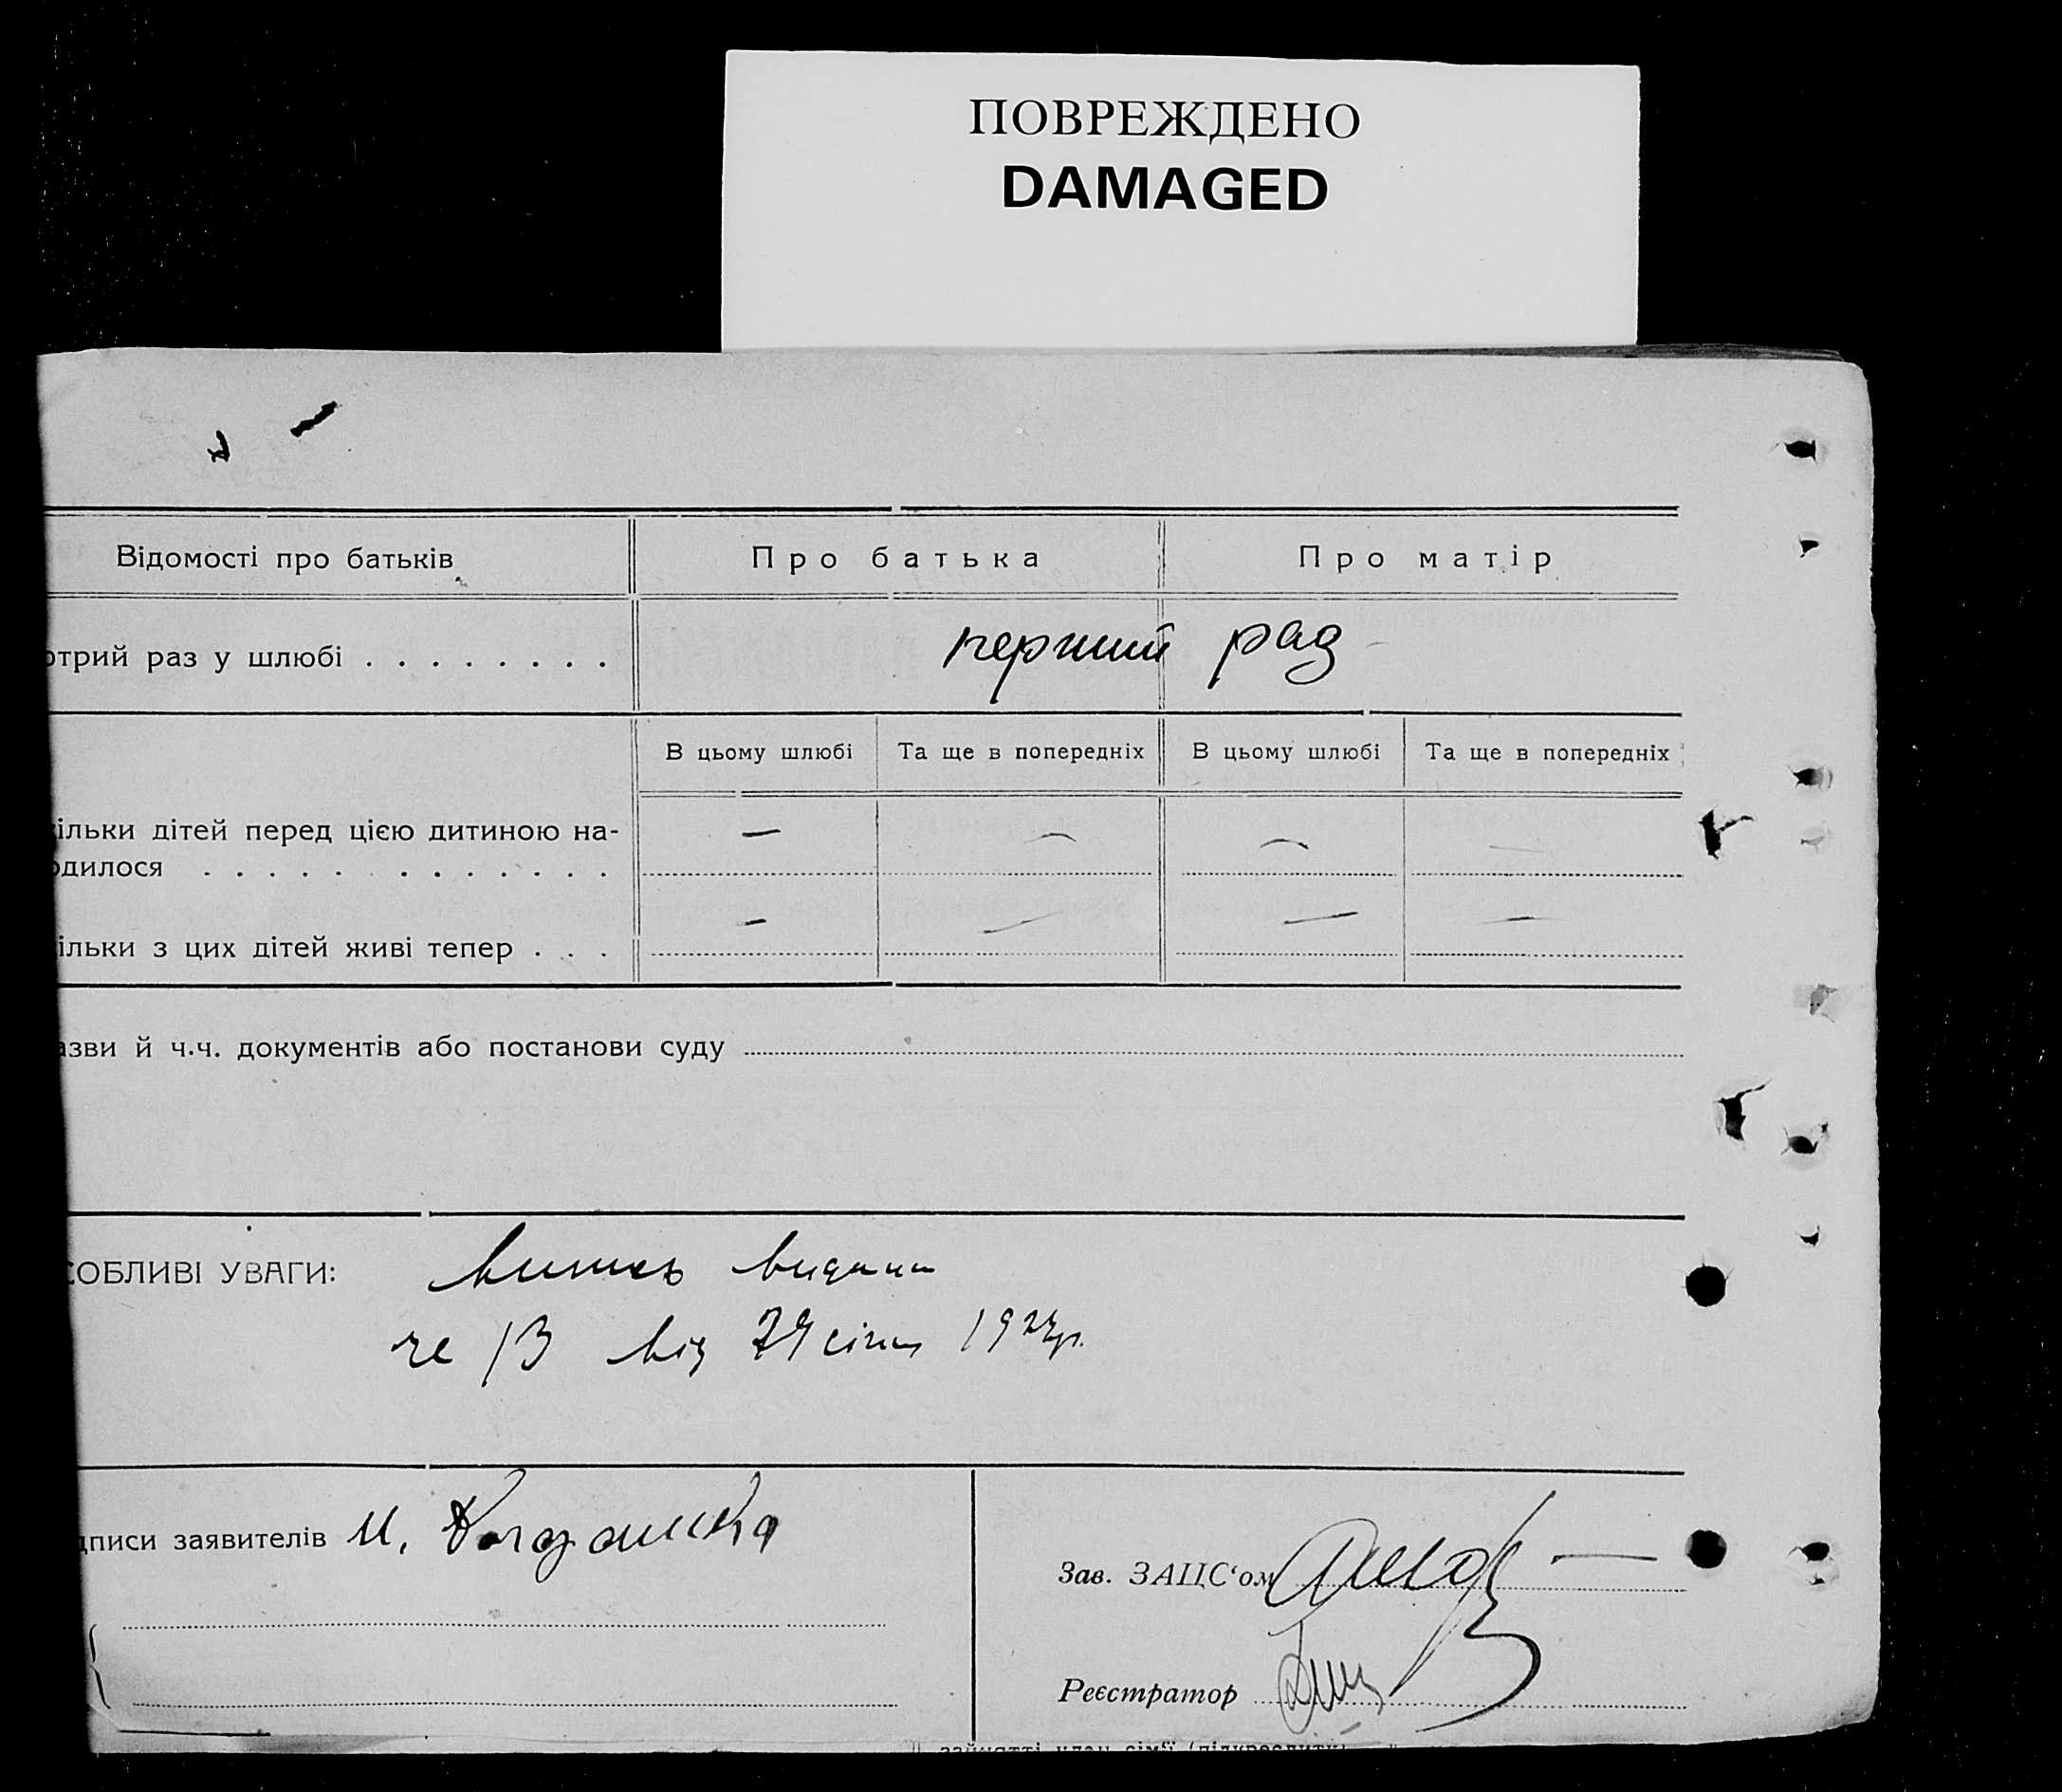 ПОВРЕЖДЕНО
DAMAGED
Відомості про батьків
Про батька
Про матір
отрий раз у шлюбі . . . . . . . .
перший раз
В цьому шлюбі
Та ще в попередніх
В цьому шлюбі
Та ще в попередніх
ільки дітей перед цією дитиною на-
— — — —
одилося . . . . . . . . . . . . .
ільки з цих дітей живі тепер . . .
— — — —
азви й ч.ч. документів або постанови суду
СОБЛИВІ УВАГИ:
Витяг видано
че 13 від 29 січня
дписи заявителів И.
Зав. ЗАЦС‘ом
Реєстратор